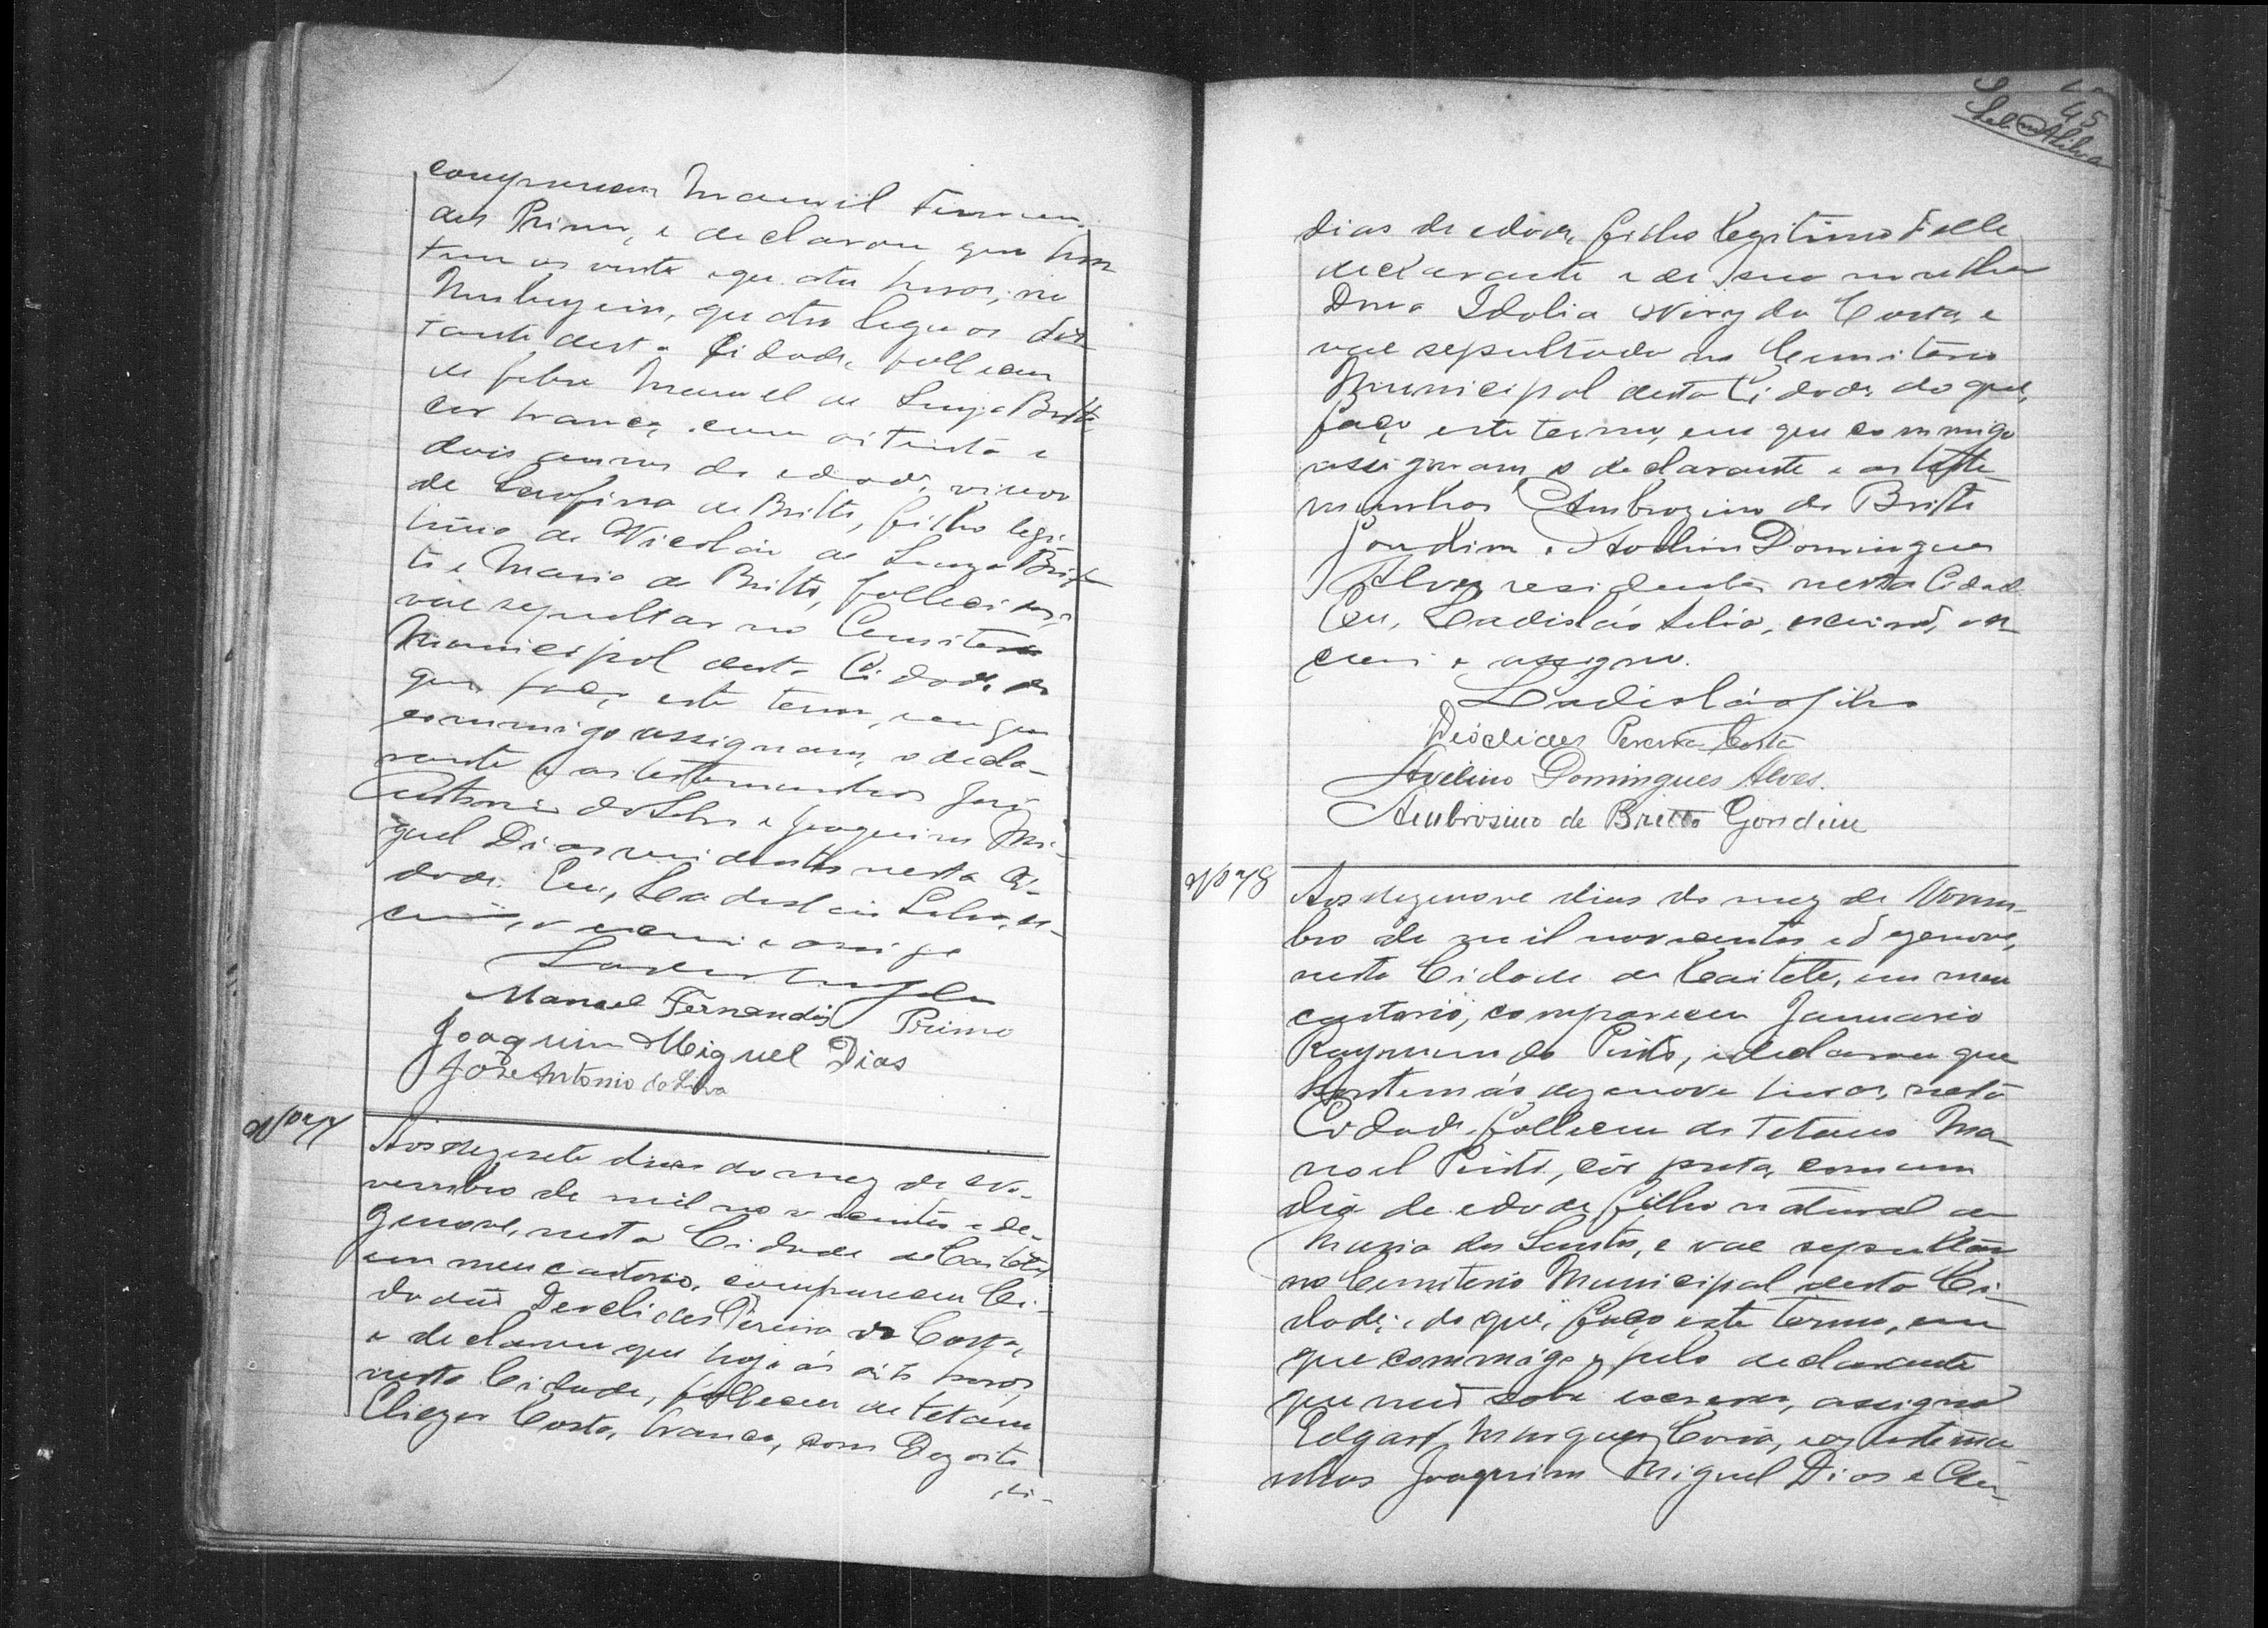 compareceu Manoel Fernan-
des Primo, e declarou que hon
tem as vinte e quatro horas, no
quatro leguas dis
tante desta Cidade, falleceu
de febre Manoel de Souza Britto,
cor branca, com oitenta e
dois annos de edade, viuvo
de Serafina de Britto, filho legi
timo de Nicolau de Souza Brit
to e Maria de Britto, fallecidos,
vae sepultar no Cemiterio
Municipal desta Cidade, do
que faço este termo, em que
commigo assignam, o decla-
rante e as testemunhas José
Antonio da Silva e Joaquim Mi-
guel Dias residentes nesta Ci-
dade. Eu, Ladisláo Silva, es-
crivão, o escrevi e assigno
Manoel Fernandes Primo
Joaquim Miguel Dias
José Antonio da Silva
Nº 77
Aos dezesete dias do mez de No-
vembro de mil novecentos e de-
zenove, nesta Cidade de Caiteté,
em meu cartorio, compareceu Ci-
dadão Deoclides Pereira da Costa,
e declarou que hoje ás oito horas,
nesta Cidade, falleceu de tetano
Eliezer Costa, branco, com Dezoito
di-
45
dias de edade, filho legitimo delle
declarante e de sua mulher
Dona Idalia Nery da Costa, e
vae sepultado no Cemiterio
Municipal desta Cidade, do que,
faço este termo, em que commigo
assignam, o declarante e as teste
munhas Ambrozino de Britto
Gondim e Avelino Domingues
Alves residentes nesta Cidade
Eu, Ladisláo Silva, escrivão, o es
crevi e assigno.
Ladisláo Silva
Deoclides Pereira Costa
Avelino Domingues Alves.
Ambrosino de Britto Gondim
Nº 78
Aos dezenove dias do mez de Novem-
bro de mil novecentos e dezenove,
nesta Cidade de Caiteté, em meu
cartorio, compareceu Januario
Raymundo Pinto, e declarou que
hontem ás dezenove horas, nesta
Cidade, falleceu de tetano Ma-
noel Pinto, côr preta, com um
dia de edade, filho natural de
Maria dos Santos, e vae sepultar
no Cemiterio Municipal desta Ci-
dade; do que, faço este termo, em
que commigo e pelo declarante
que não sabe escrever, assigna
Edgard Marques e as testemu
nhas Joaquim Miguel Dias e